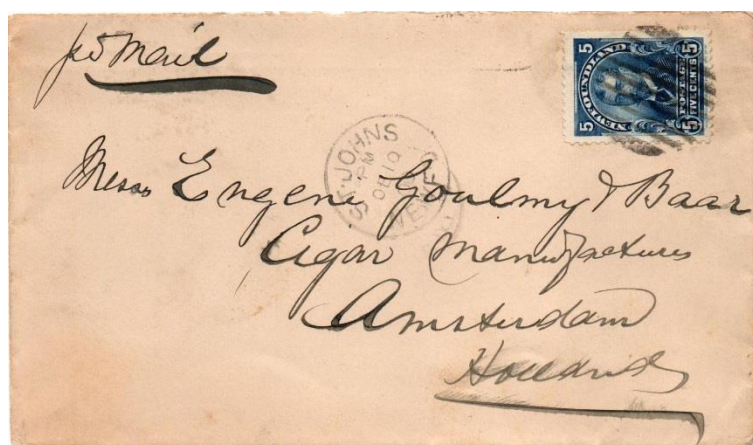 per Mail
5 NEWFOUNDLAND 5
5 POSTAGE FIVE CENTS 5
ST. JOHNS
PM
DE 10
NEWF
Messrs Eugene Goulmy & Baar
Cigar Manufacturers
Amsterdam
Holland